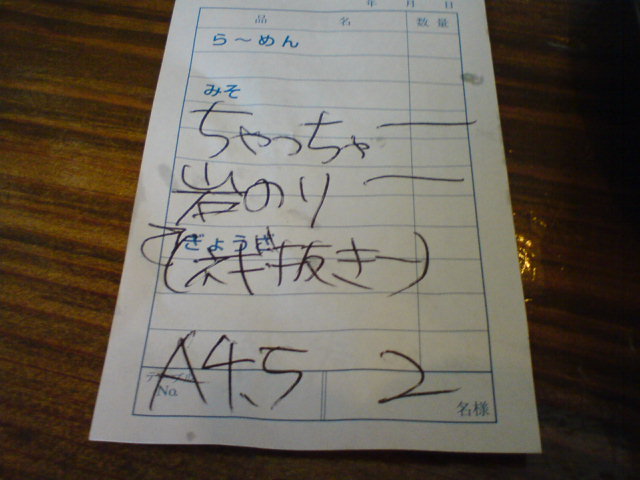 年 月 日
品 名 数量
ら～めん
みそ
ちゃっちゃ 一
岩のり 一
ぎょうざ
(ネギ抜き一)
A4.5 2
テーブル No. 名様